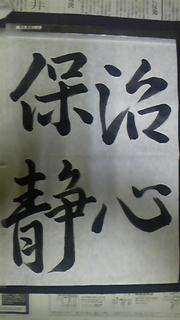 治心
保静